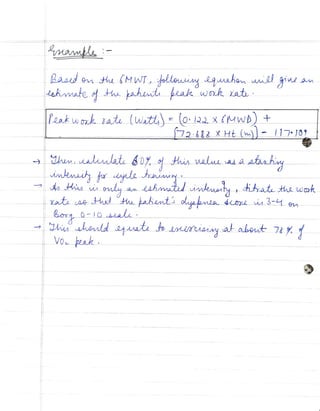 Example :-
Based on the 6MWT, following equation will give an
estimate of the patients peak work rate.
Peak work rate (watts) = (0.122 x 6MWD) +
(72.682 x Ht (m)) - 117.109
→ Then, calculate 60% of this value as a starting
intensity for cycle training.
→ As this is only an estimated intensity, titrate the work
rate so that the patient's dyspnea score is 3-4 on
Borg 0-10 scale.
→ This should equate to exercising at about 78% of
VO₂ peak.